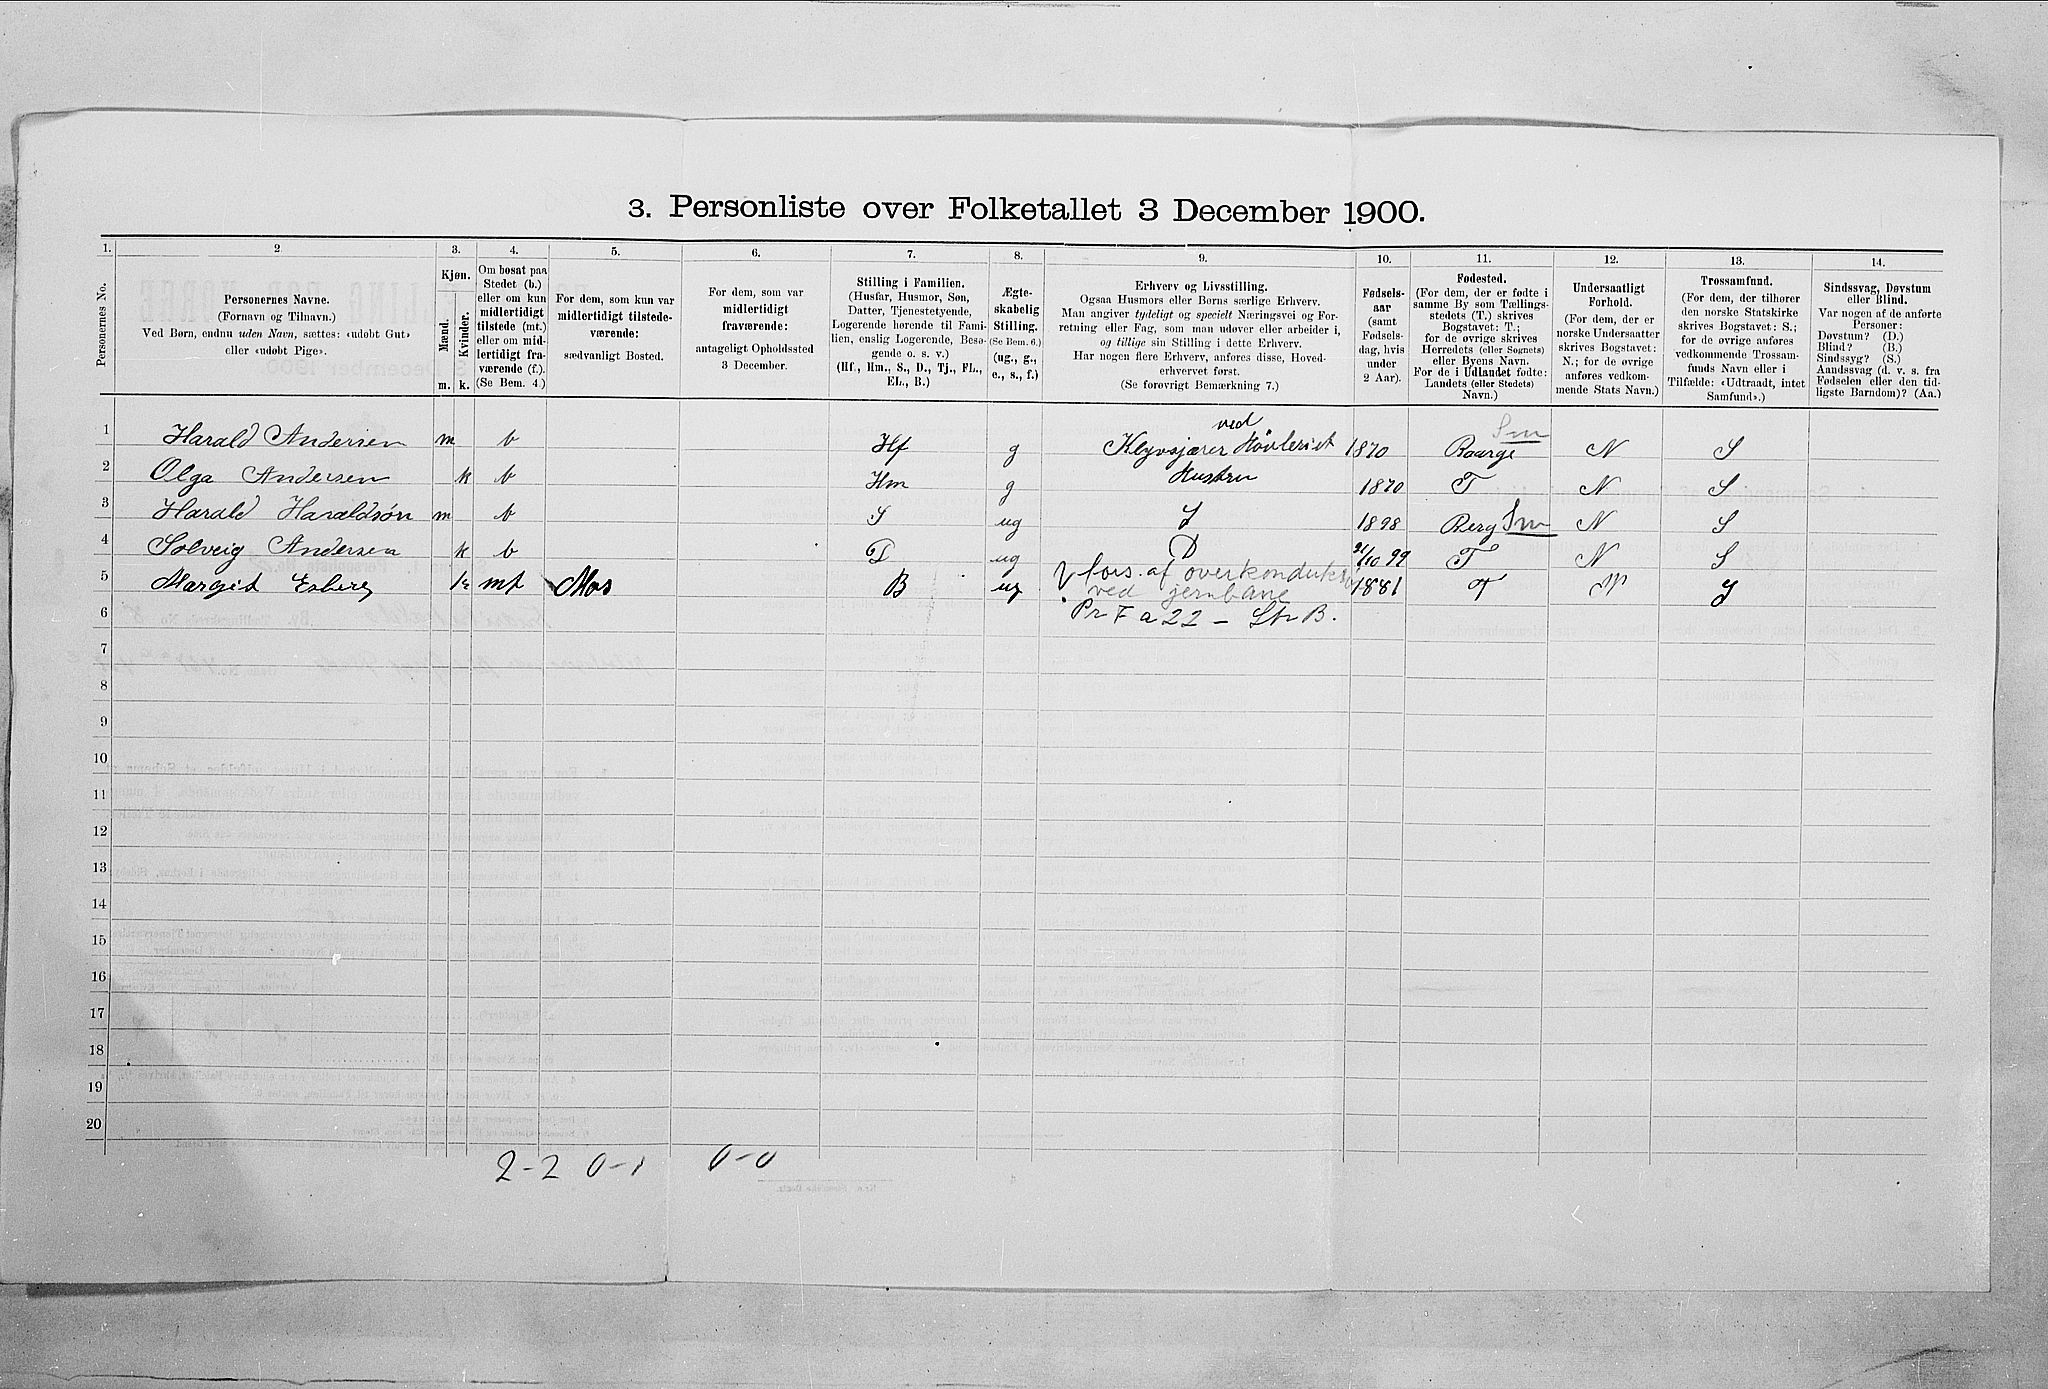 3. Personliste over Folketallet 3 December 1900.
1. 2. 3. 4. 5. 6. 7. 8. 9. 10. 11. 12. 13. 14.
Personernes No.
Personernes Navne.
(Fornavn og Tilnavn.)
Ved Børn, endnu uden Navn, sættes: «udøbt Gut»
eller «udøbt Pige».
Kjøn.
Mænd.
Kvinder.
m. k.
Om bosat paa
Stedet (b.)
eller om kun
midlertidigt
tilstede (mt.)
eller om mid-
lertidigt fra-
værende (f.).
(Se Bem. 4.)
For dem, som kun var
midlertidigt tilstede-
værende:
sædvanligt Bosted.
For dem, som var
midlertidigt
fraværende:
antageligt Opholdssted
3 December.
Stilling i Familien.
(Husfar, Husmor, Søn,
Datter, Tjenestetyende,
Logerende hørende til Fami-
lien, enslig Logerende, Besø-
gende o. s. v.)
(Hf., Hm., S., D., Tj., FL.,
EL., B.)
Ægte-
skabelig
Stilling.
(Se Bem. 6.)
(ug., g.,
e., s., f.)
Erhverv og Livsstilling.
Ogsaa Husmors eller Børns særlige Erhverv.
Man angiver tydeligt og specielt Næringsvei og For-
retning eller Fag, som man udøver eller arbeider i,
og tillige sin Stilling i dette Erhverv.
Har nogen flere Erhverv, anføres disse, Hoved-
erhvervet først.
(Se forøvrigt Bemærkning 7.)
Fødsels-
aar
(samt
Fødsels-
dag, hvis
under
2 Aar).
Fødested.
(For dem, der er fødte i
samme By som Tællings-
stedets (T.) skrives
Bogstavet: T.;
for de øvrige skrives
Herredets (eller Sognets)
eller Byens Navn.
For de i Udlandet fødte:
Landets (eller Stedets)
Navn.)
Undersaatligt
Forhold.
(For dem, der er
norske Undersaatter
skrives Bogstavet:
N.; for de øvrige
anføres vedkom-
mende Stats Navn.)
Trossamfund.
(For dem, der tilhører
den norske Statskirke
skrives Bogstavet: S.;
for de øvrige anføres
vedkommende Trossam-
funds Navn eller i
Tilfælde: «Udtraadt, intet
Samfund».)
Sindssvag, Døvstum
eller Blind.
Var nogen af de anførte
Personer:
Døvstum? (D.)
Blind? (B.)
Sindssyg? (S.)
Aandssvag (d. v. s. fra
Fødselen eller den tid-
ligste Barndom)? (Aa.)
ved Sm
1 Harald Andersen m b Hf g Høvleriet 1870 N S
2 Olga Andersen k b Hm g Hustru 1870 T N S
3 Harald Haraldsøn m b S ug S 1898 Berg Sm N S
4 Solveig Andersen k b D ug D 21/10 99 T N S
5 Margid Esberg k mt Mos B ug fors. af overkonduktør 1881 T N S
ved jernbane
6 Pr F a 22 — Str B.
7
8
9
10
11
12
13
14
15
16
17
18
19
20
2-2 0-1 0-0